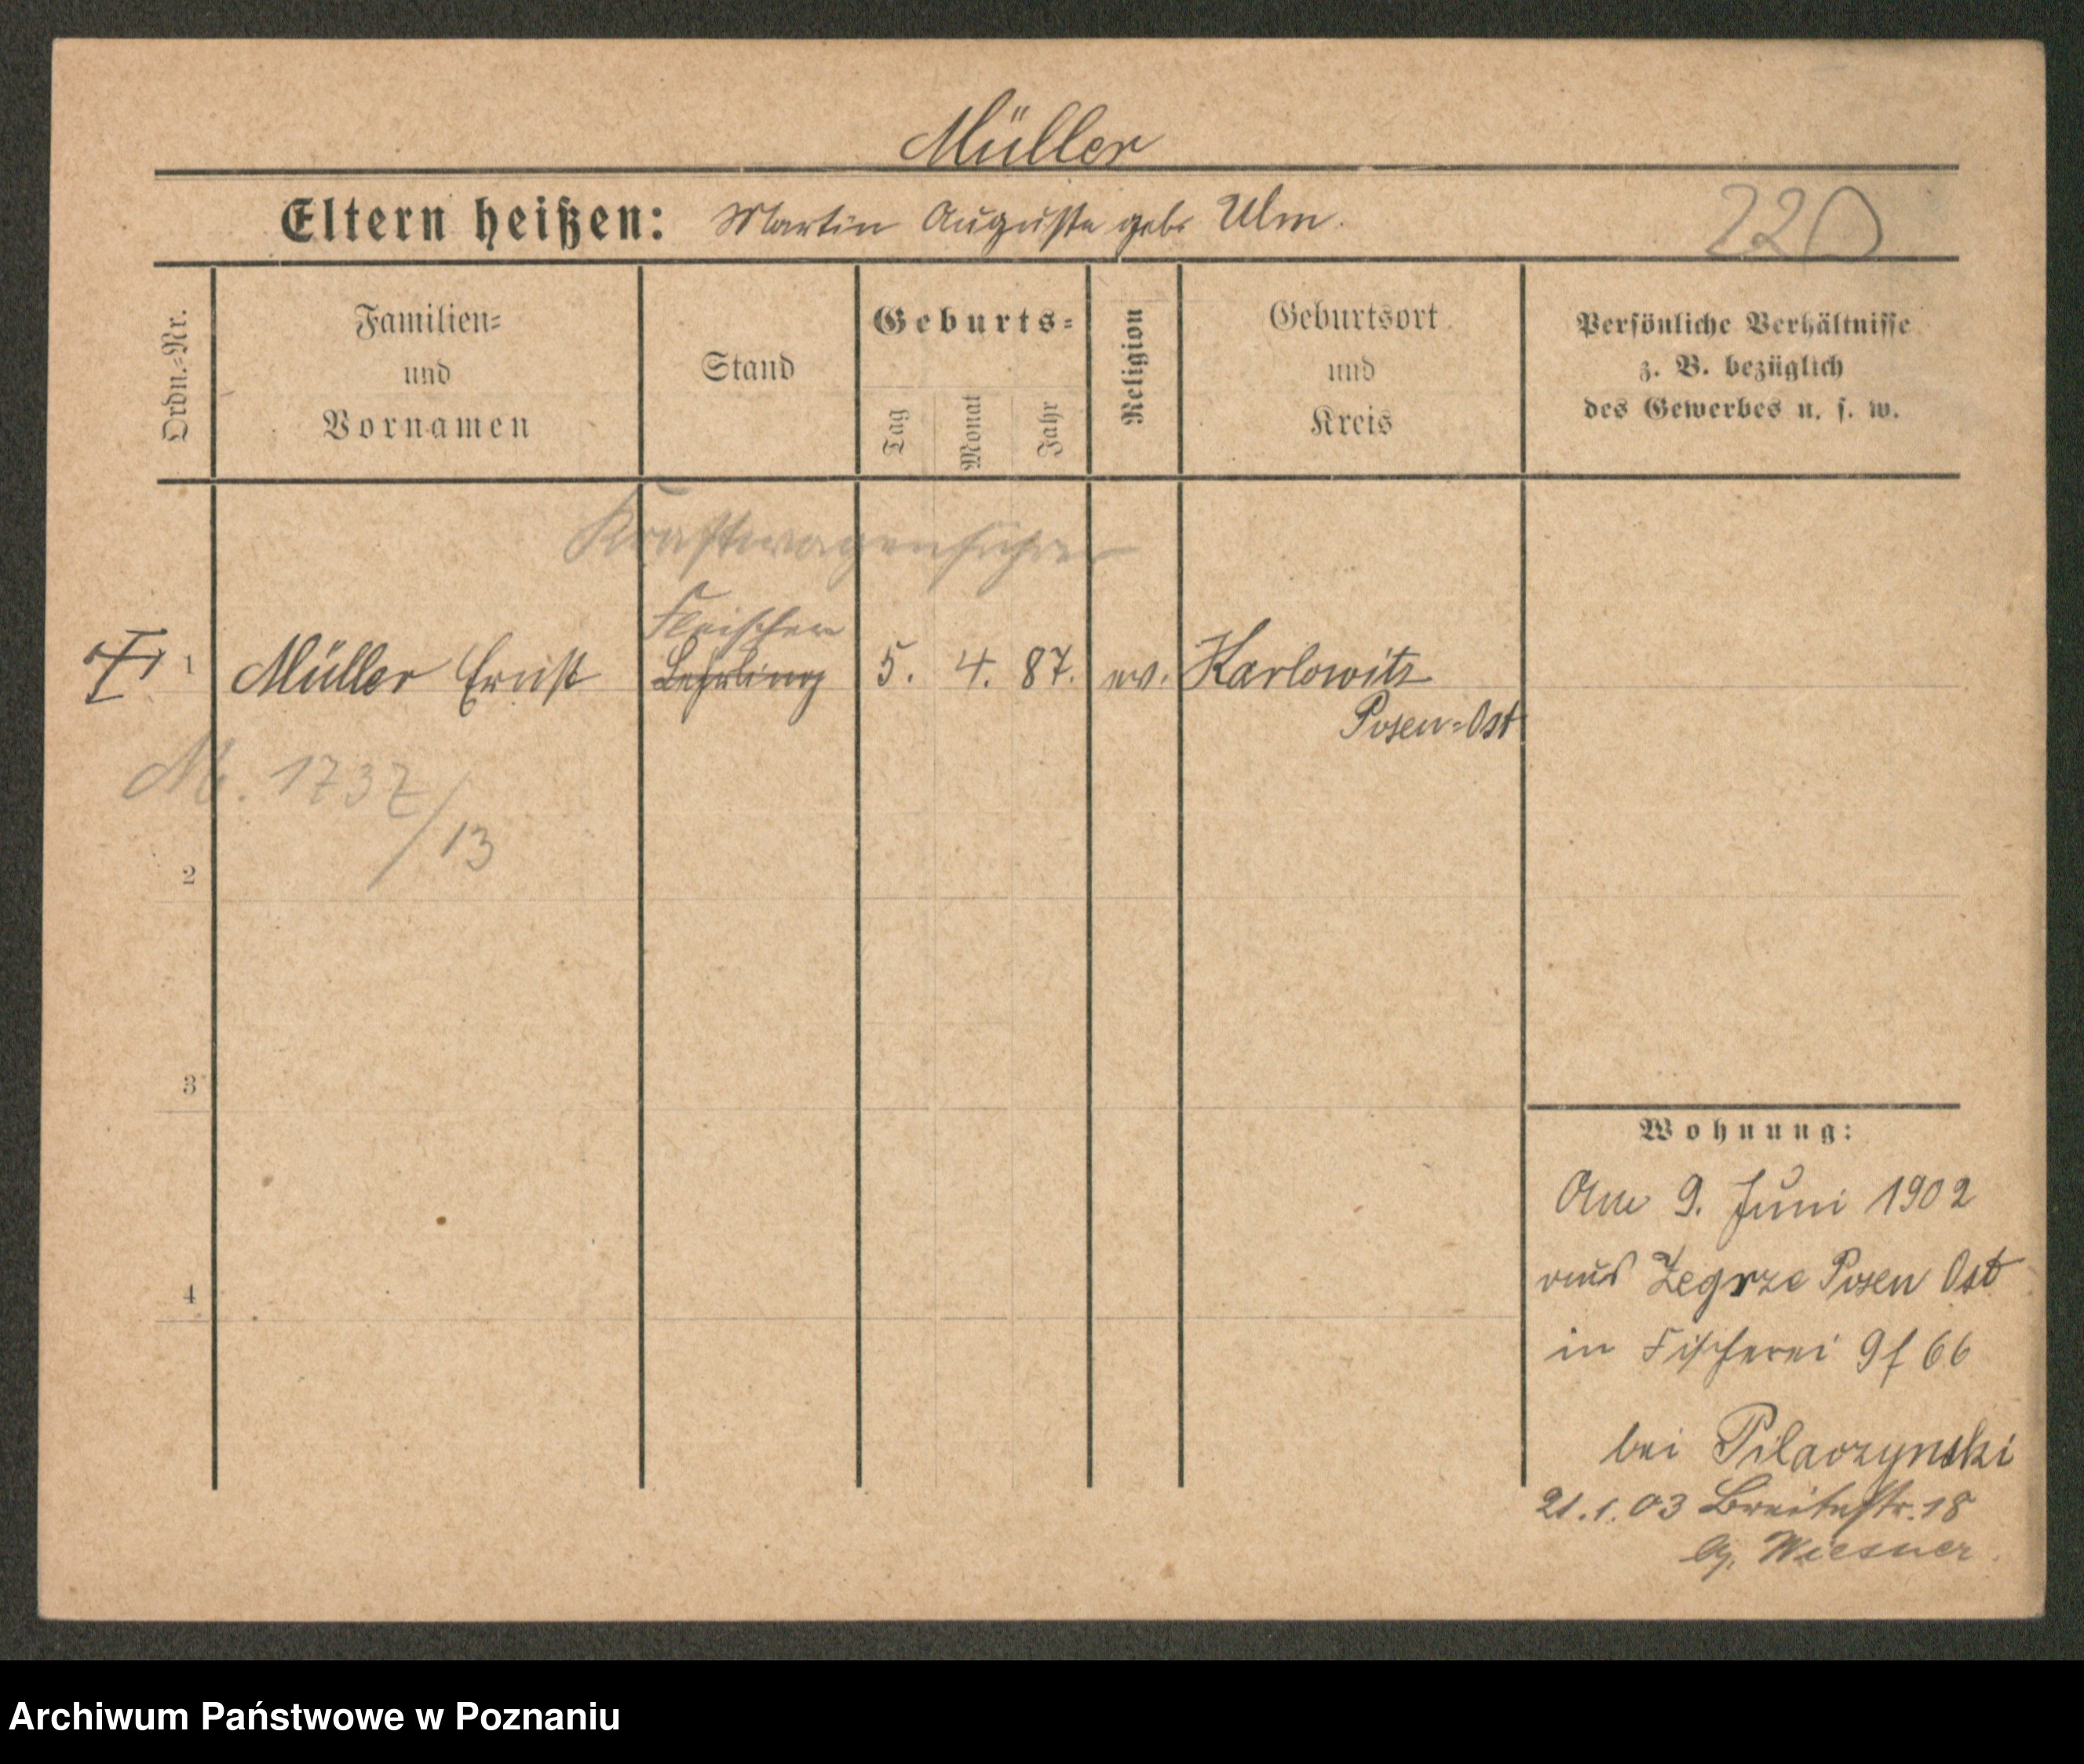 Müller
Eltern heißen: Martin Auguste geb. Ulm.
220
Ordn.=Nr.
Familien=
und
Vornamen
Stand
Geburts=
Tag
Monat
Jahr
Religion
Geburtsort
und
Kreis
Persönliche Verhältnisse
z. B. bezüglich
des Gewerbes u. s. w.
Kraftwagenführer
Fleischer
1 Müller Ernst Lehrling 5. 4. 87. ev. Karlowitz
Posen=Ost
M. 1737/13
2
3
4
Wohnung:
Am 9. Juni 1902
aus Zegrze Posen Ost
in Fischerei 9 f 66
bei Pilaczynski
21.1.03 Breitestr. 18
Wiesner.
Archiwum Państwowe w Poznaniu